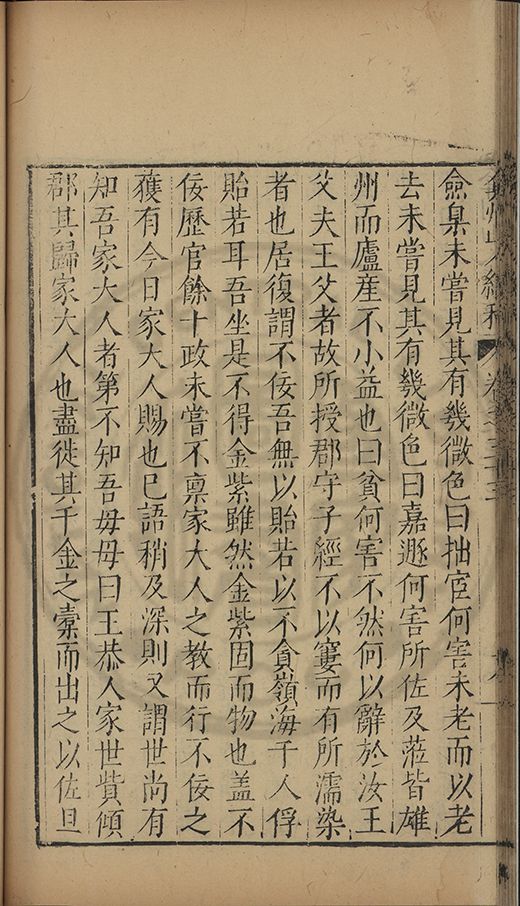 弇州山人續稿 卷之三十三
僉臬未嘗見其有幾微色曰拙宦何害未老而以老
去未嘗見其有幾微色曰嘉遯何害所佐及蒞皆雄
州而廬産不小益也曰貧何害不然何以辭於汝王
父夫王父者故所授郡守子經不以窶而有所濡染
者也居復謂不佞吾無以貽若以不貪嶺海千人俘
貽若耳吾坐是不得金紫雖然金紫固而物也盖不
佞歷官餘十政未嘗不禀家大人之教而行不佞之
獲有今日家大人賜也已語稍及深則又謂世尚有
知吾家大人者第不知吾毋毋曰王恭人家世貲傾
郡其歸家大人也盡徙其千金之橐而出之以佐旦